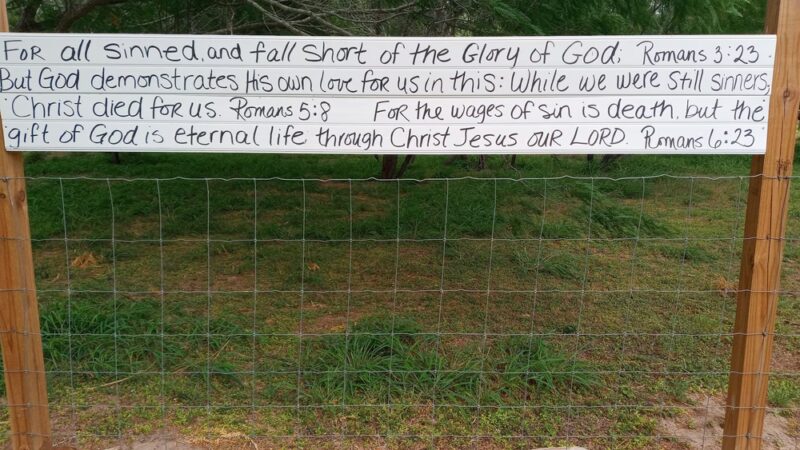 FOR all Sinned, and fall Short of the Glory of God; Romans 3:23
But God demonstrates His own love for us in this: While we were Still sinners,
Christ died for us. Romans 5:8 FOR the wages of sin is death, but the
gift of God is eternal life through Christ Jesus OUR LORD. Romans 6:23